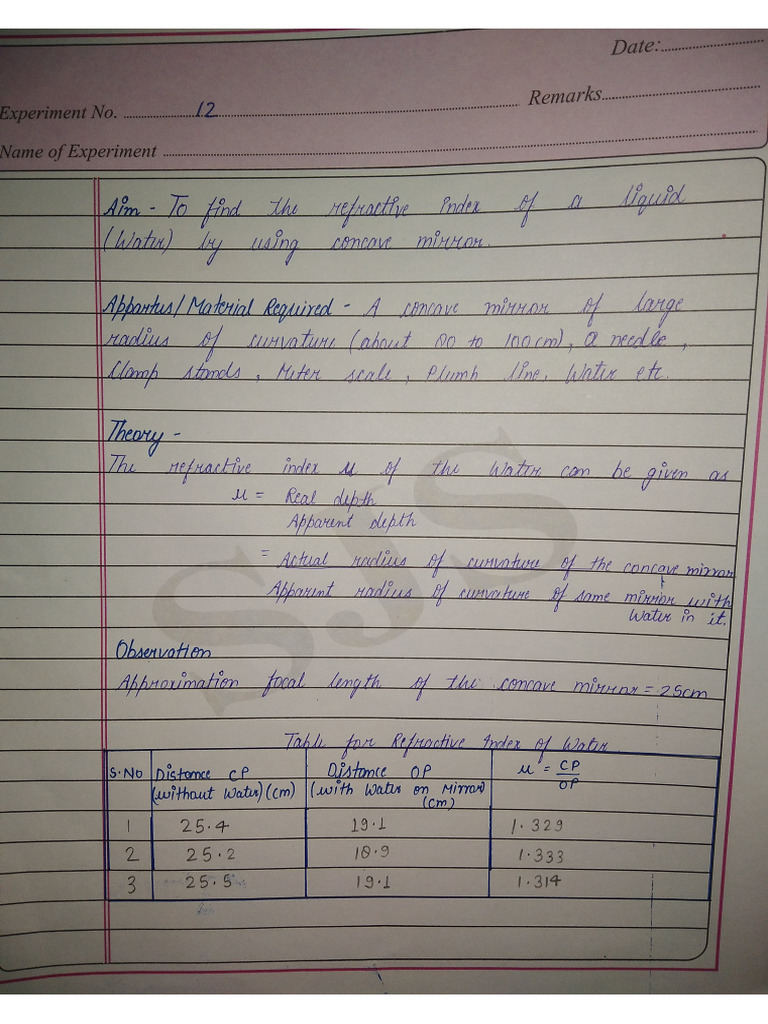 Date:
Experiment No. 12 Remarks
Name of Experiment
Aim - To find the refractive index of a liquid
(Water) by using concave mirror.
Appartus/Material Required - A concave mirror of large
radius of curvature (about 80 to 100cm), a needle,
Clamp stands, Meter scale, Plumb line, Water etc.
Theory -
The refractive index μ of the Water can be given as
μ = Real depth
Apparent depth
= Actual radius of curvature of the concave mirror
Apparent radius of curvature of same mirror with
Water in it.
Observation
Approximation focal length of the concave mirror = 25cm
Table for Refractive Index of Water
S.No Distance CP (without Water)(cm) Distance OP (with Water on Mirror) (cm) μ = CP/OP
1 25.4 19.1 1.329
2 25.2 18.9 1.333
3 25.5 19.1 1.314
SJS